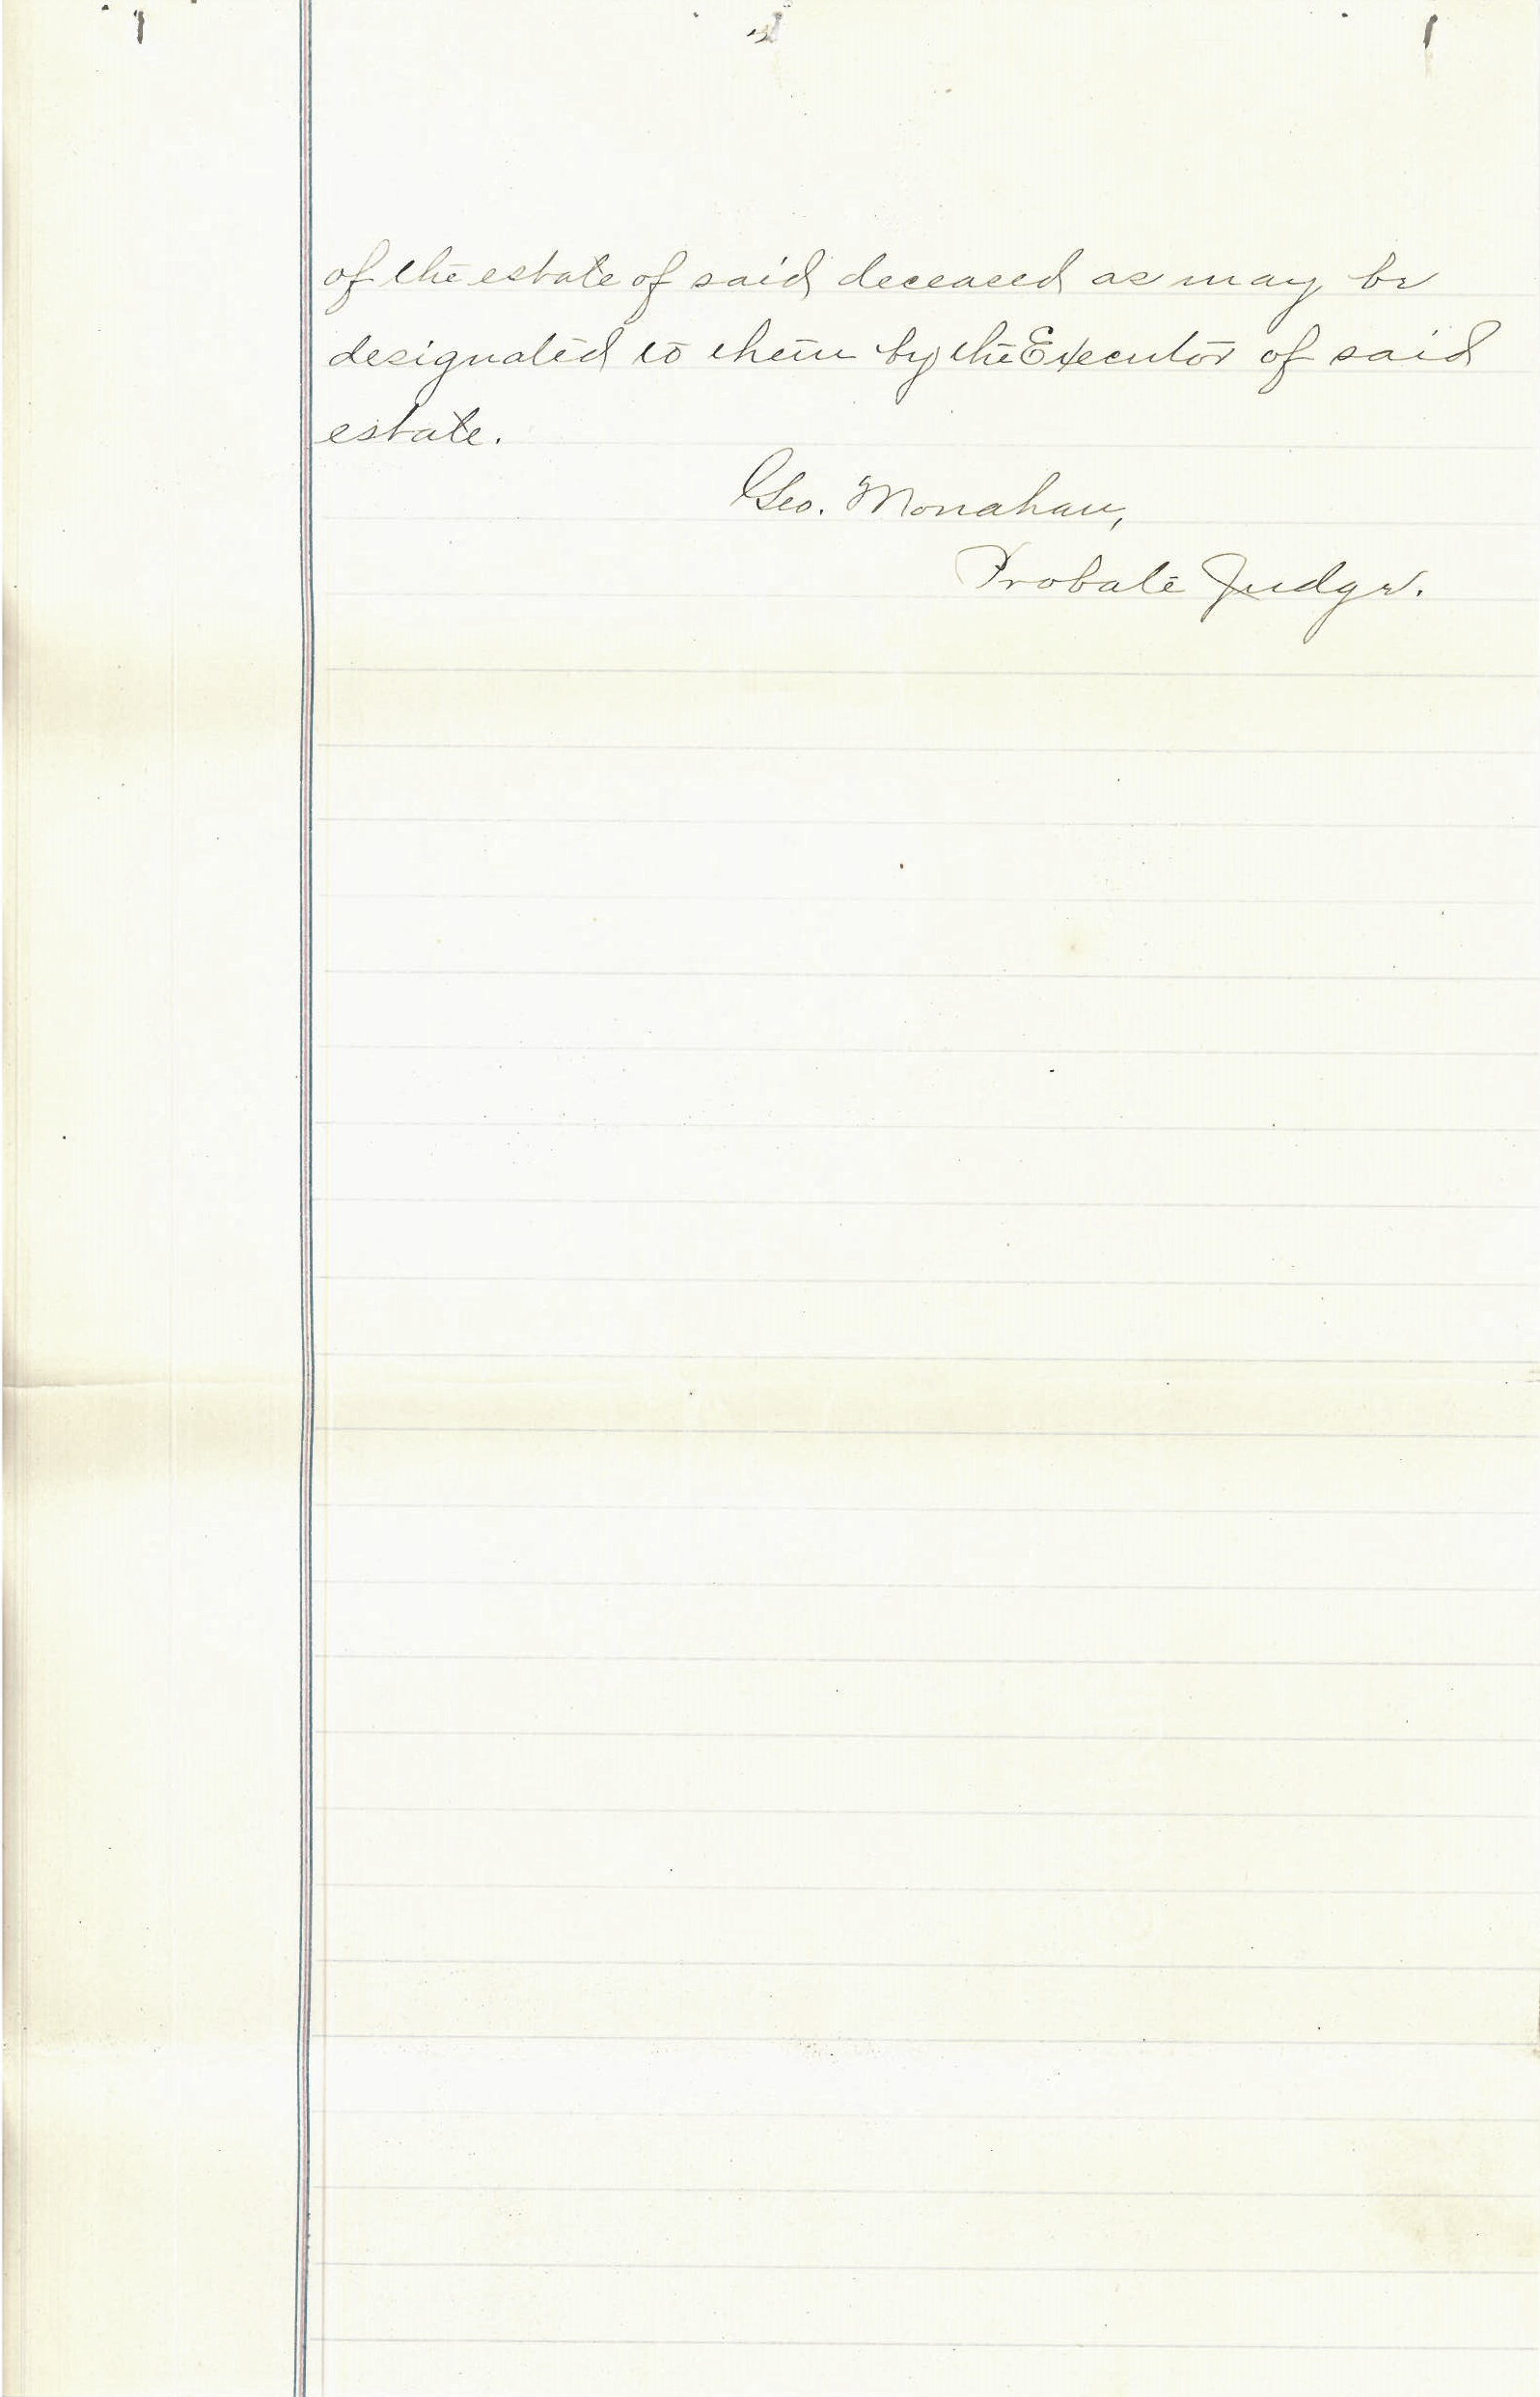 of the estate of said deceased as may be
designated to them by the Executor of said
estate.
Geo. Monahan,
Probate Judge.